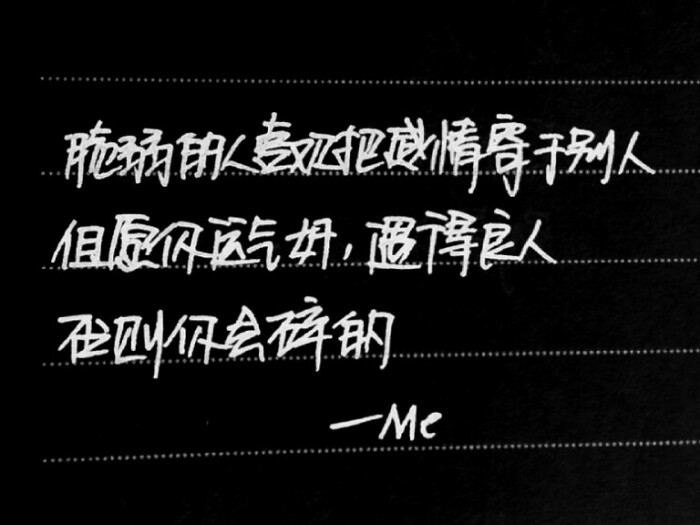 脆弱的人喜欢把感情寄于别人
但愿你运气好，遇得良人
否则你会碎的
—Me